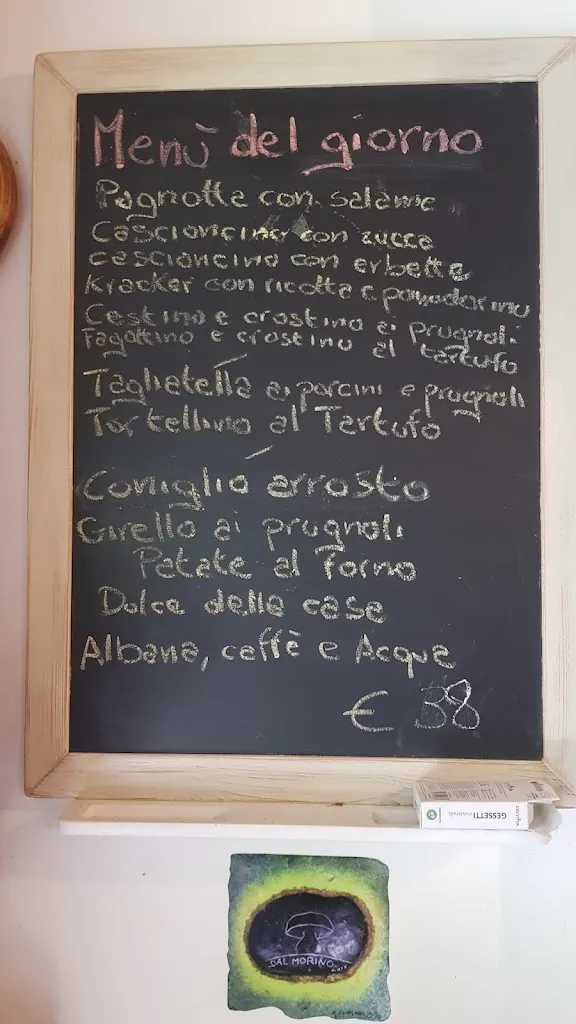 Menù del giorno
Pagnotta con salame
Cascioncino con zucca
cascioncino con erbette
Kracker con ricotta e pomodorino
Cestino e crostino ai prugnoli
Fagottino e crostino al tartufo
Tagliatella ai porcini e prugnoli
Tortellino al Tartufo
Coniglio arrosto
Girello ai prugnoli
Patate al Forno
Dolce della casa
Albana, caffè e Acqua
€ 38
GESSETTI
DAL MORINO